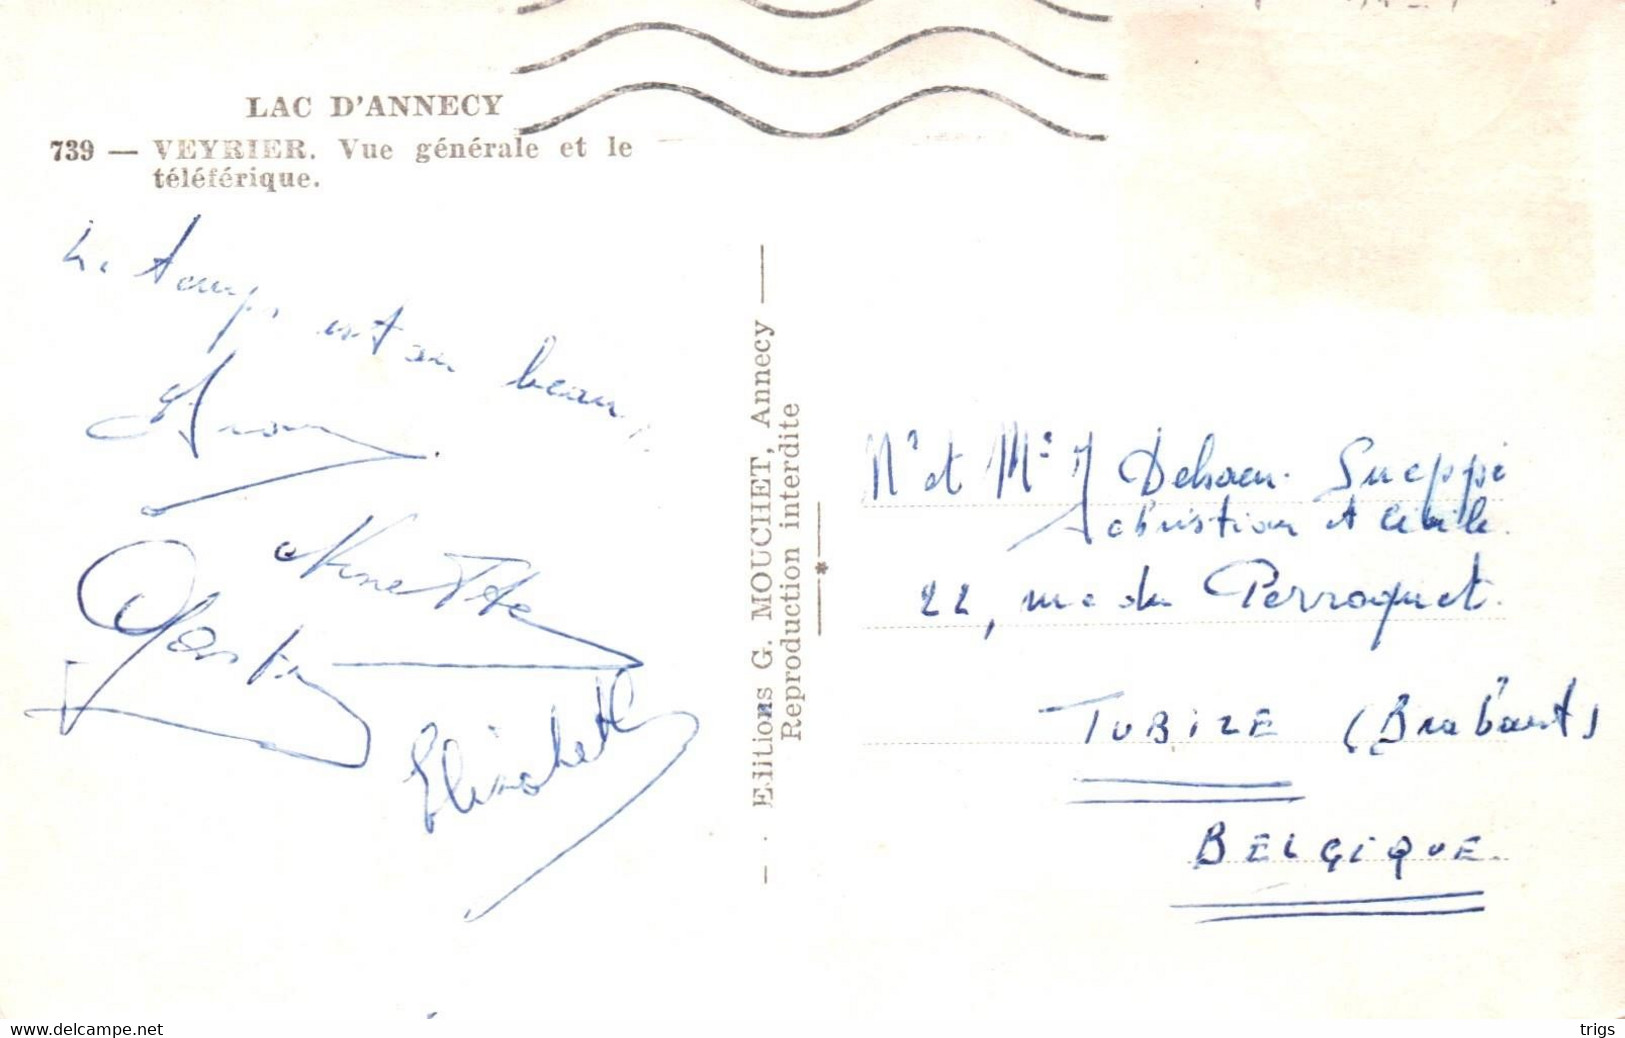 LAC D'ANNECY
739 — VEYRIER. Vue générale et le
téléférique.
Le temps est au beau,
Ninette
Elisabeth
Editions G. MOUCHET, Annecy
Reproduction interdite
Mr et Me J Dehaen. Gueppi
22, rue du Perroquet.
TUBIZE (Brabant)
BELGIQUE.
www.delcampe.net
trigs